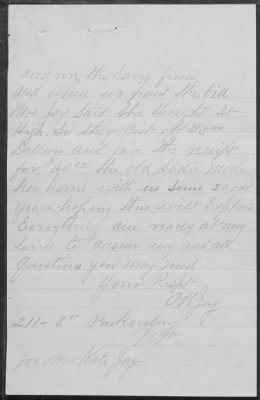 and on the same time
and when we paid the bill
Mrs Jay Said She thought It
High. So they Cut off $5.00
Dollars and gave the receipt
for $60.00 the old Ladie made
her home with us Some 20 odd
years. hoping this will Explain
Everything are ready at any
time to answer any and all
Questions you may need
Your Respt
Jay
211 - 8th Parkersburg
W Va
for Mrs Kate Jay